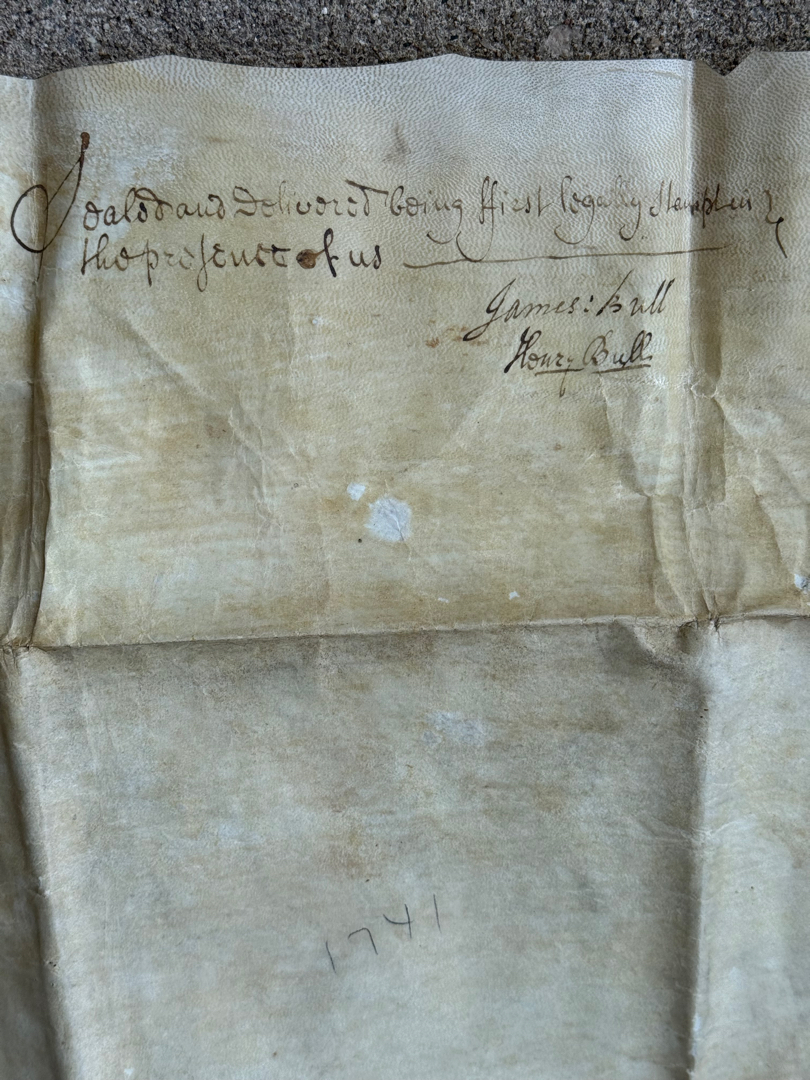 Sealed and Delivered being ffirst legally Stampt in
the presence of us
James: Bull
Henry Bull
1741